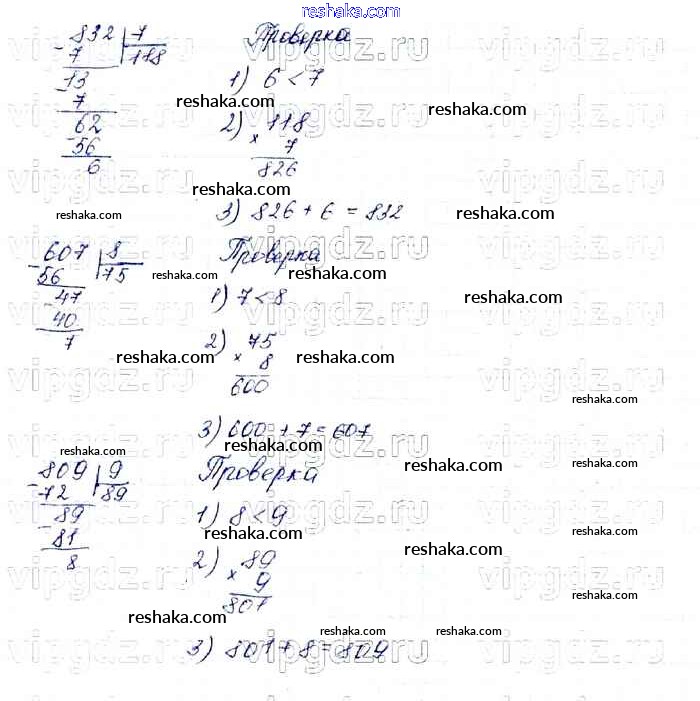 reshaka.com
832 | 7
- 7 | 118
13
- 7
62
- 56
6
Проверка
1) 6 < 7
2) 118
× 7
826
3) 826 + 6 = 832
607 | 8
- 56 | 75
47
- 40
7
Проверка
1) 7 < 8
2) 75
× 8
600
3) 600 + 7 = 607
809 | 9
- 72 | 89
89
- 81
8
Проверка
1) 8 < 9
2) 89
× 9
801
3) 801 + 8 = 809
vipgdz.ru
reshaka.com